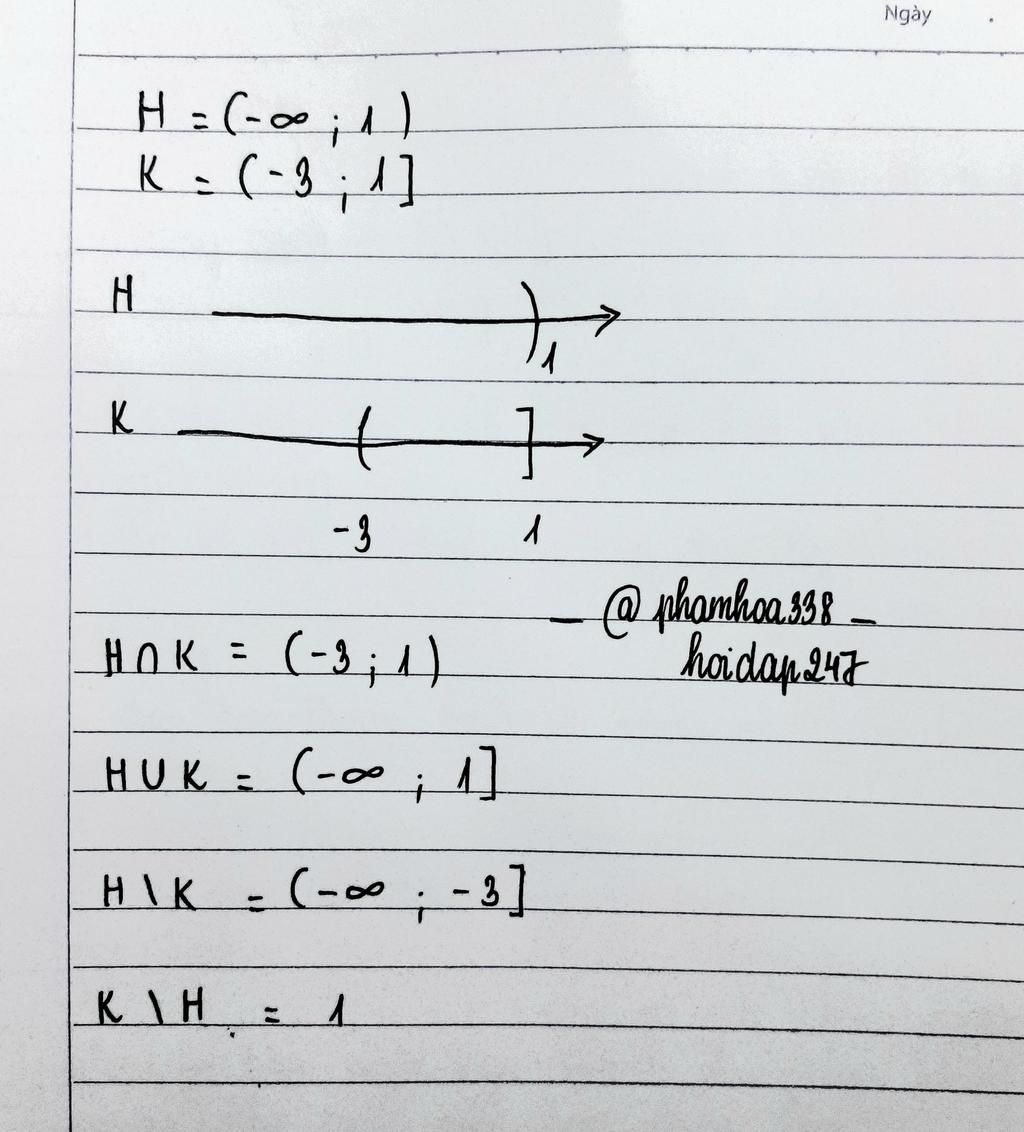 Ngày .
H = (-∞ ; 1 )
K = (-3 ; 1 ]
H
1
K
-3 1
- @phamhoa338 -
hoidap247
H ∩ K = (-3 ; 1 )
H ∪ K = (-∞ ; 1 ]
H \ K = (-∞ ; -3 ]
K \ H = 1